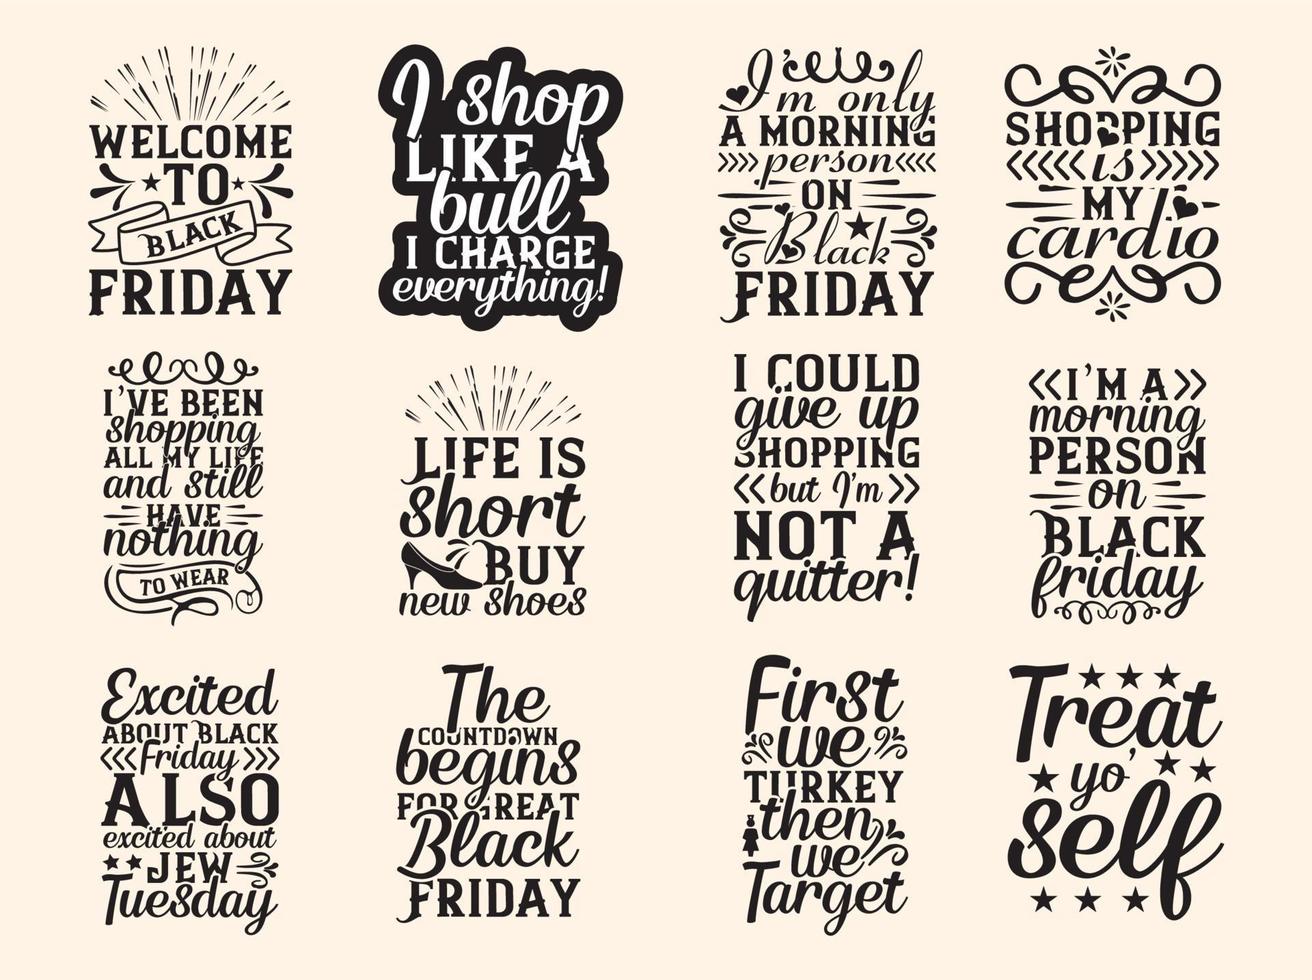 WELCOME
TO
BLACK
FRIDAY
I shop
LIKE A
bull
I CHARGE
everything!
I'm only
A MORNING
person
ON
Black
FRIDAY
SHOPPING
is
MY
cardio
I'VE BEEN
shopping
ALL MY LIFE
and still
HAVE
nothing
TO WEAR
LIFE IS
short
BUY
new shoes
I COULD
give up
SHOPPING
but I'm
NOT A
quitter!
I'M A
morning
PERSON
on
BLACK
friday
Excited
ABOUT BLACK
Friday
ALSO
excited about
JEW
Tuesday
The
COUNTDOWN
begins
FOR GREAT
Black
FRIDAY
First
we
TURKEY
then
we
Target
Treat
yo'
self